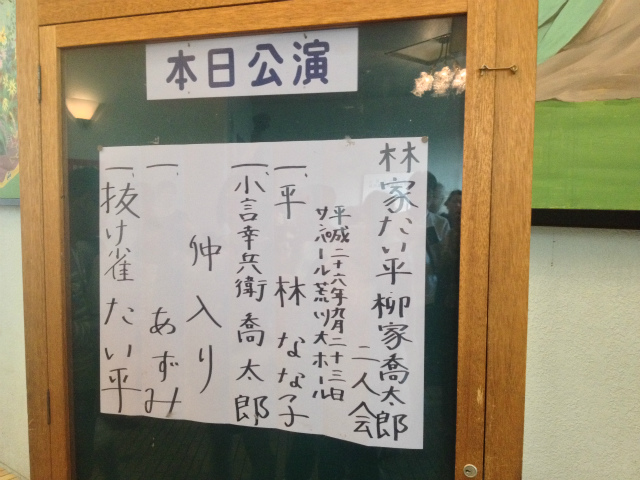 本日公演
林家たい平・柳家喬太郎
二人会
平成二十六年九月二十三日
サンパール荒川大ホール
一、平林 なな子
一、小言幸兵衛 喬太郎
仲入り
一、 あずみ
一、抜け雀 たい平